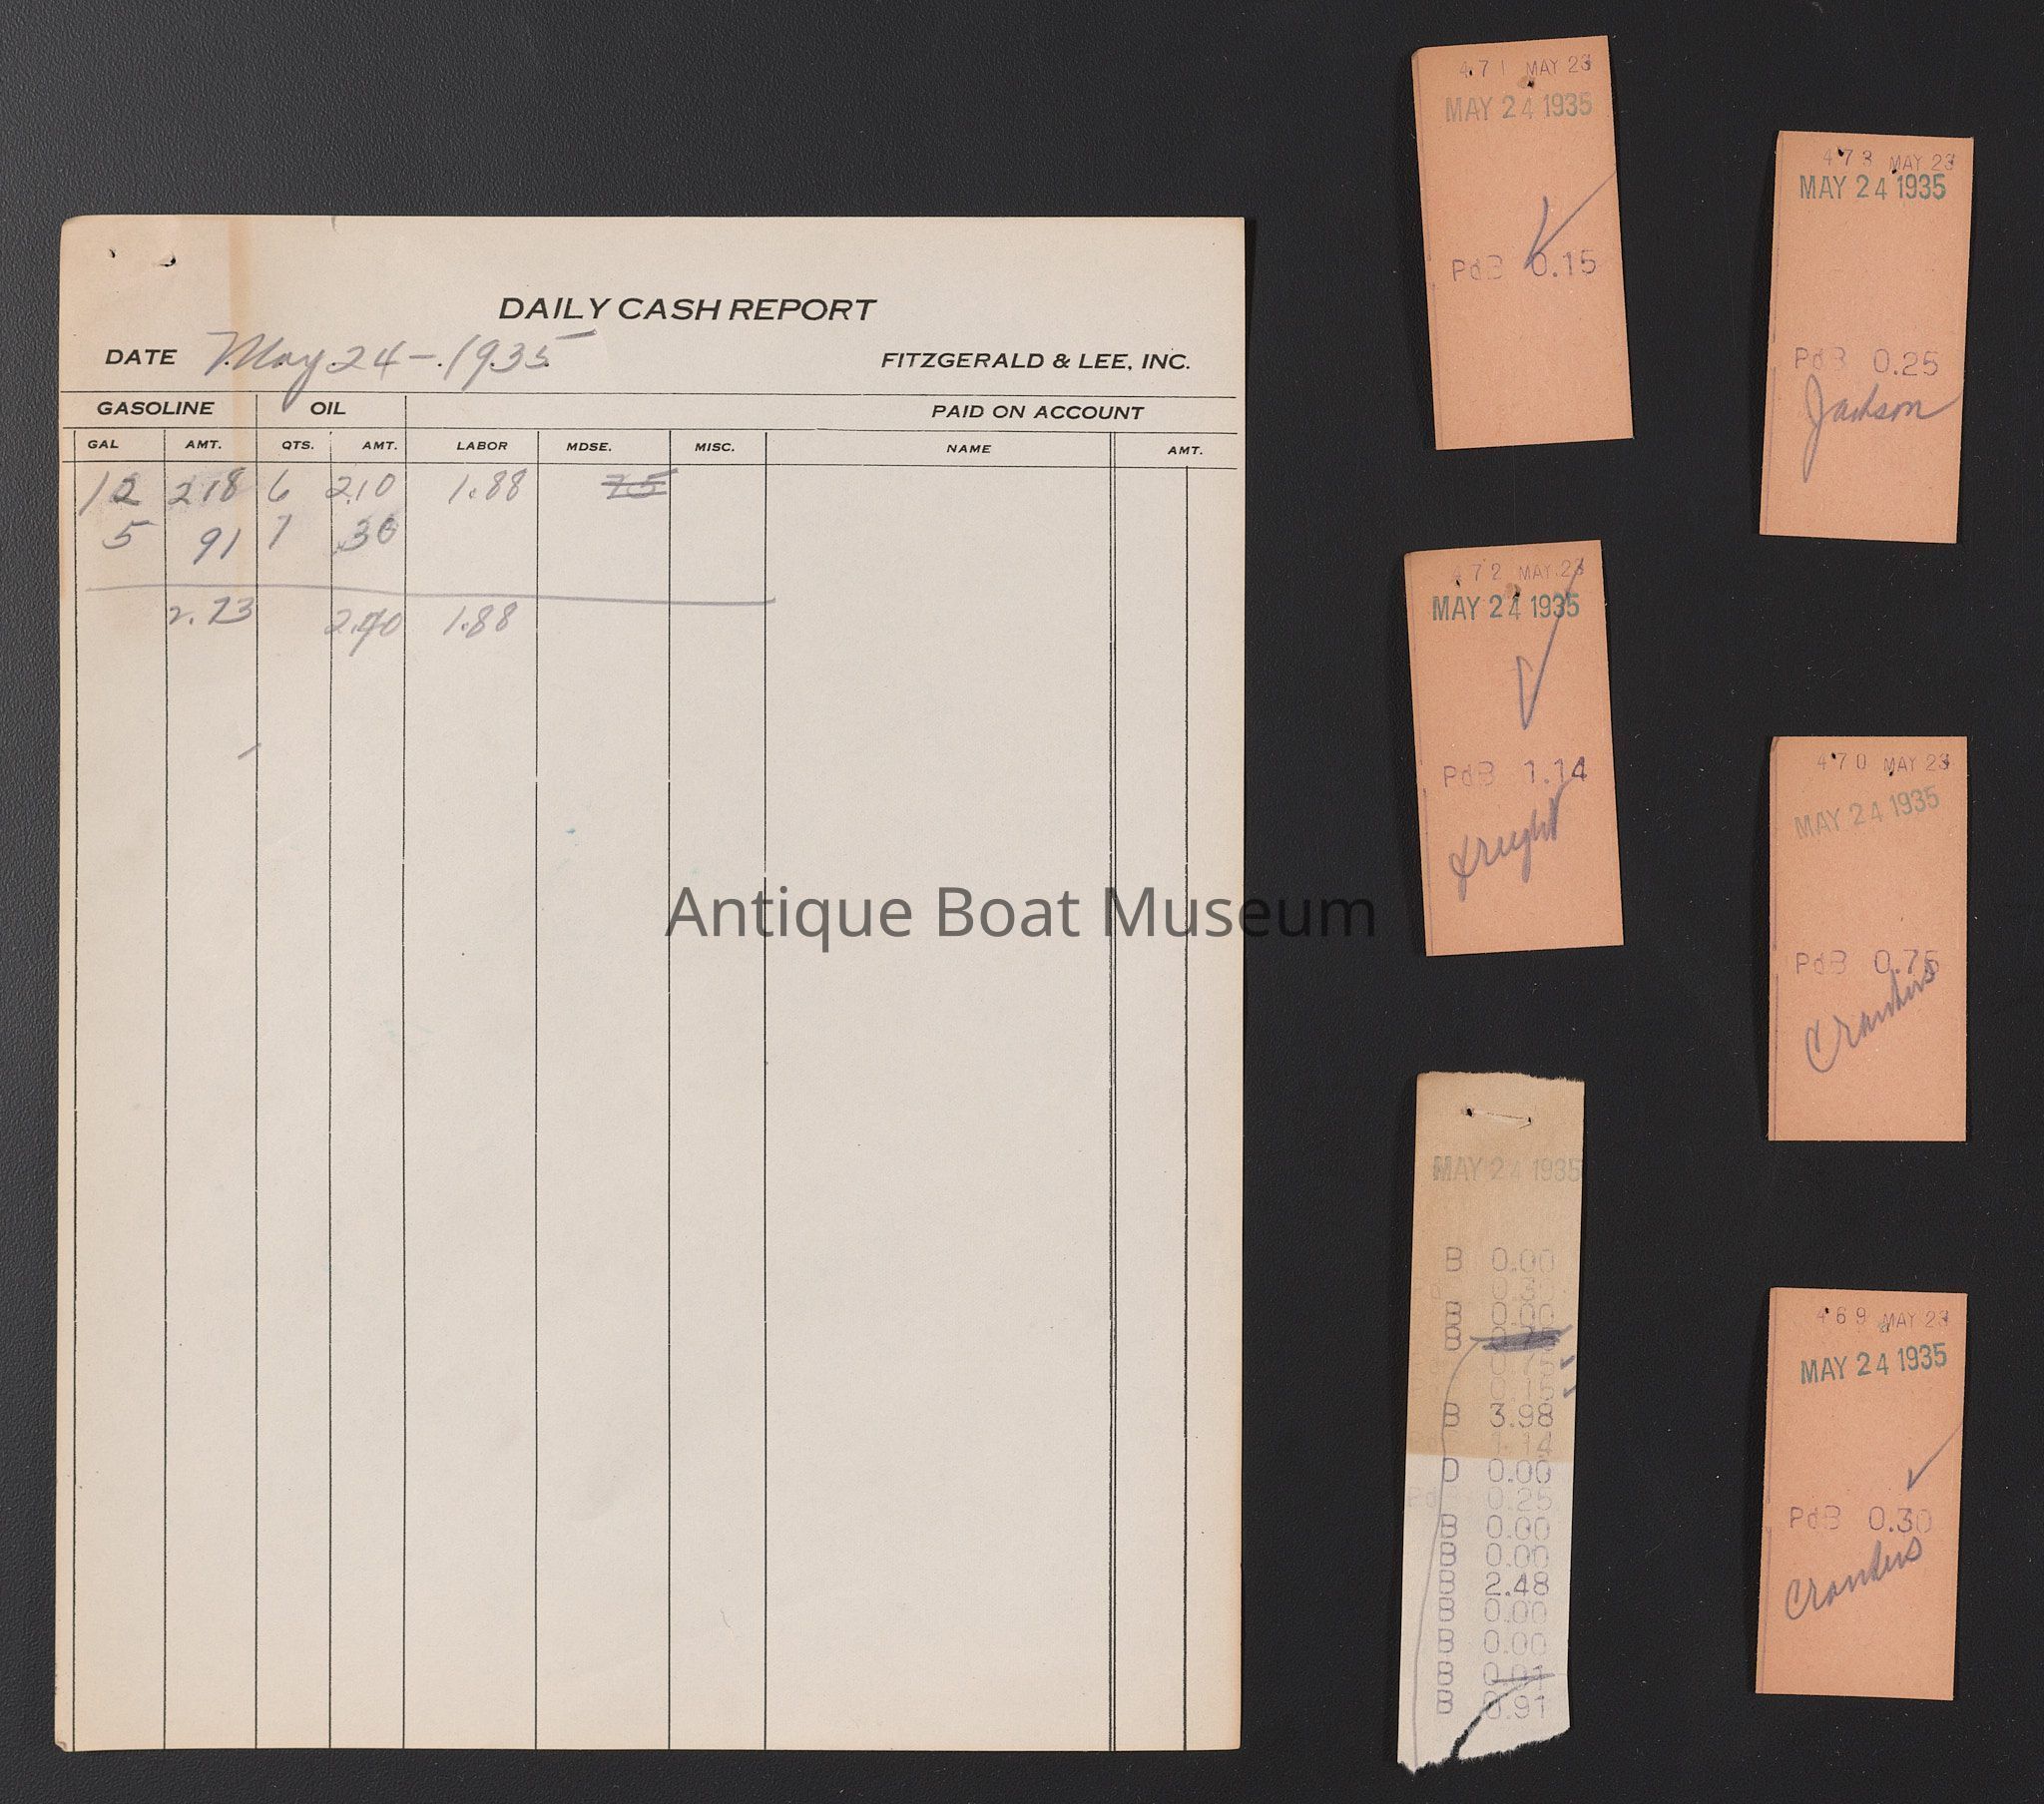 DAILY CASH REPORT
DATE May 24-1935
FITZGERALD & LEE, INC.
GASOLINE OIL PAID ON ACCOUNT
GAL AMT. QTS. AMT. LABOR MDSE. MISC. NAME AMT.
12 218 6 2.10 1.88 75
5 91 1 .30
2.73 2.40 1.88
Antique Boat Museum
471 MAY 23
MAY 24 1935
PdB 0.15
472 MAY 23
MAY 24 1935
PdB 1.14
freight
MAY 24 1935
B 0.00
0.30
B 0.00
B
0.75
0.15
B 3.98
1.14
D 0.00
Pd 0.25
B 0.00
B 0.00
B 2.48
B 0.00
B 0.00
B 0.01
B 0.91
473 MAY 23
MAY 24 1935
PdB 0.25
Jackson
470 MAY 23
MAY 24 1935
PdB 0.75
469 MAY 23
MAY 24 1935
PdB 0.30